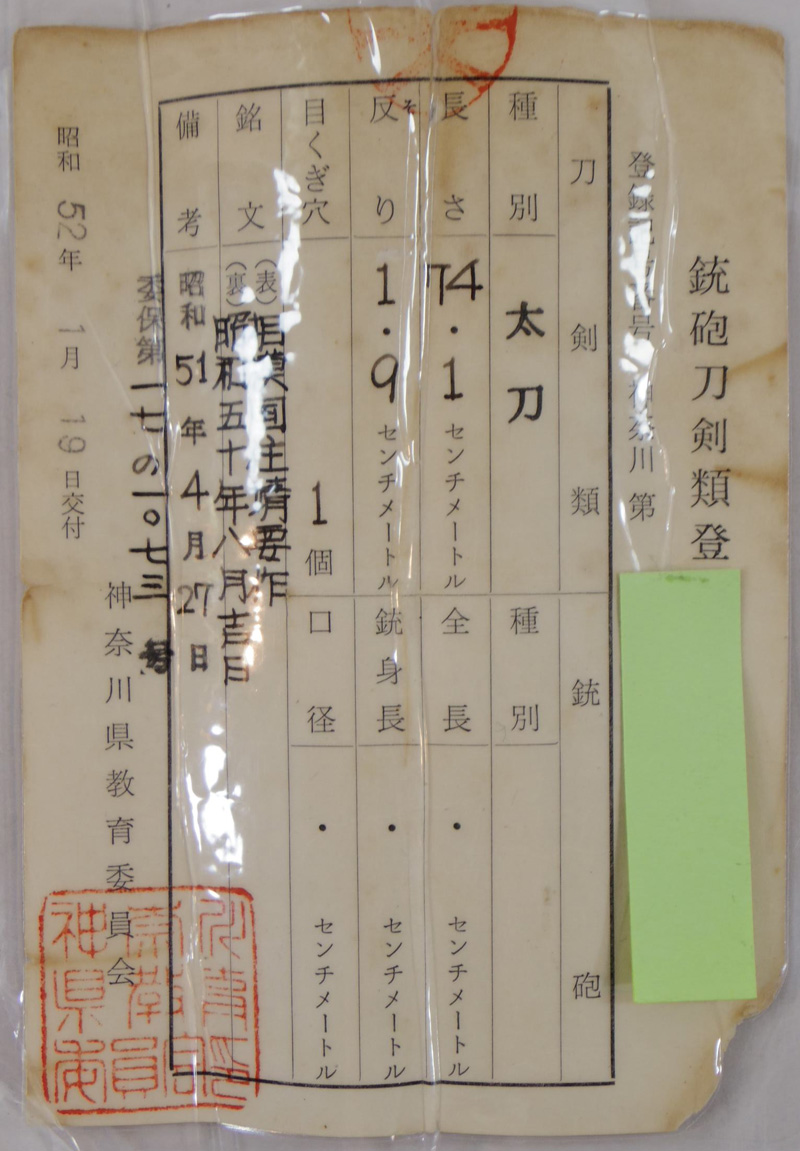 銃砲刀剣類登
登録記号番号 神奈川 第
刀剣類
種別 太刀
長さ 74.1 センチメートル
反り そ 1.9 センチメートル
目くぎ穴 1個
銘文 (表) 相模国住 作
(裏) 昭和五十年八月吉日
備考 昭和51年4月27日
委保第一七の一〇七三号
銃砲
種別
全長 ・ センチメートル
銃身長 ・ センチメートル
口径 ・ センチメートル
昭和52年1月19日交付
神奈川県教育委員会